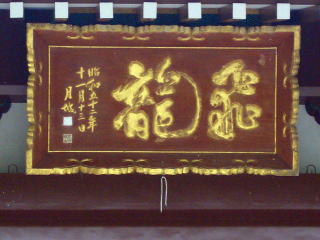 飛龍
昭和五十三年
十一月十三日